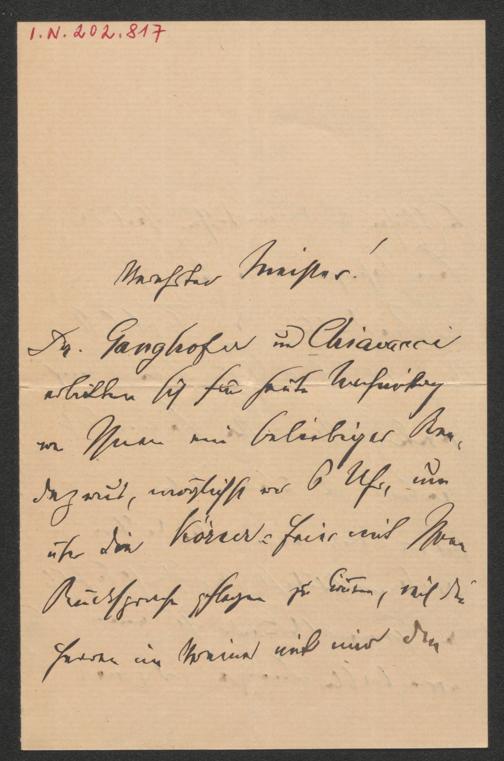 I.N. 202.817
Verehrter Meister!
Dr. Ganghofer und Chiavacci
erbitten sich für heute Nachmittag
von Ihnen ein beliebiges Ren-
dezvous, möglichst vor 6 Uhr, um
über die Körner-Feier mit Ihnen
Rücksprache pflegen zu können, weil die
Herren im Vereine mit mir den